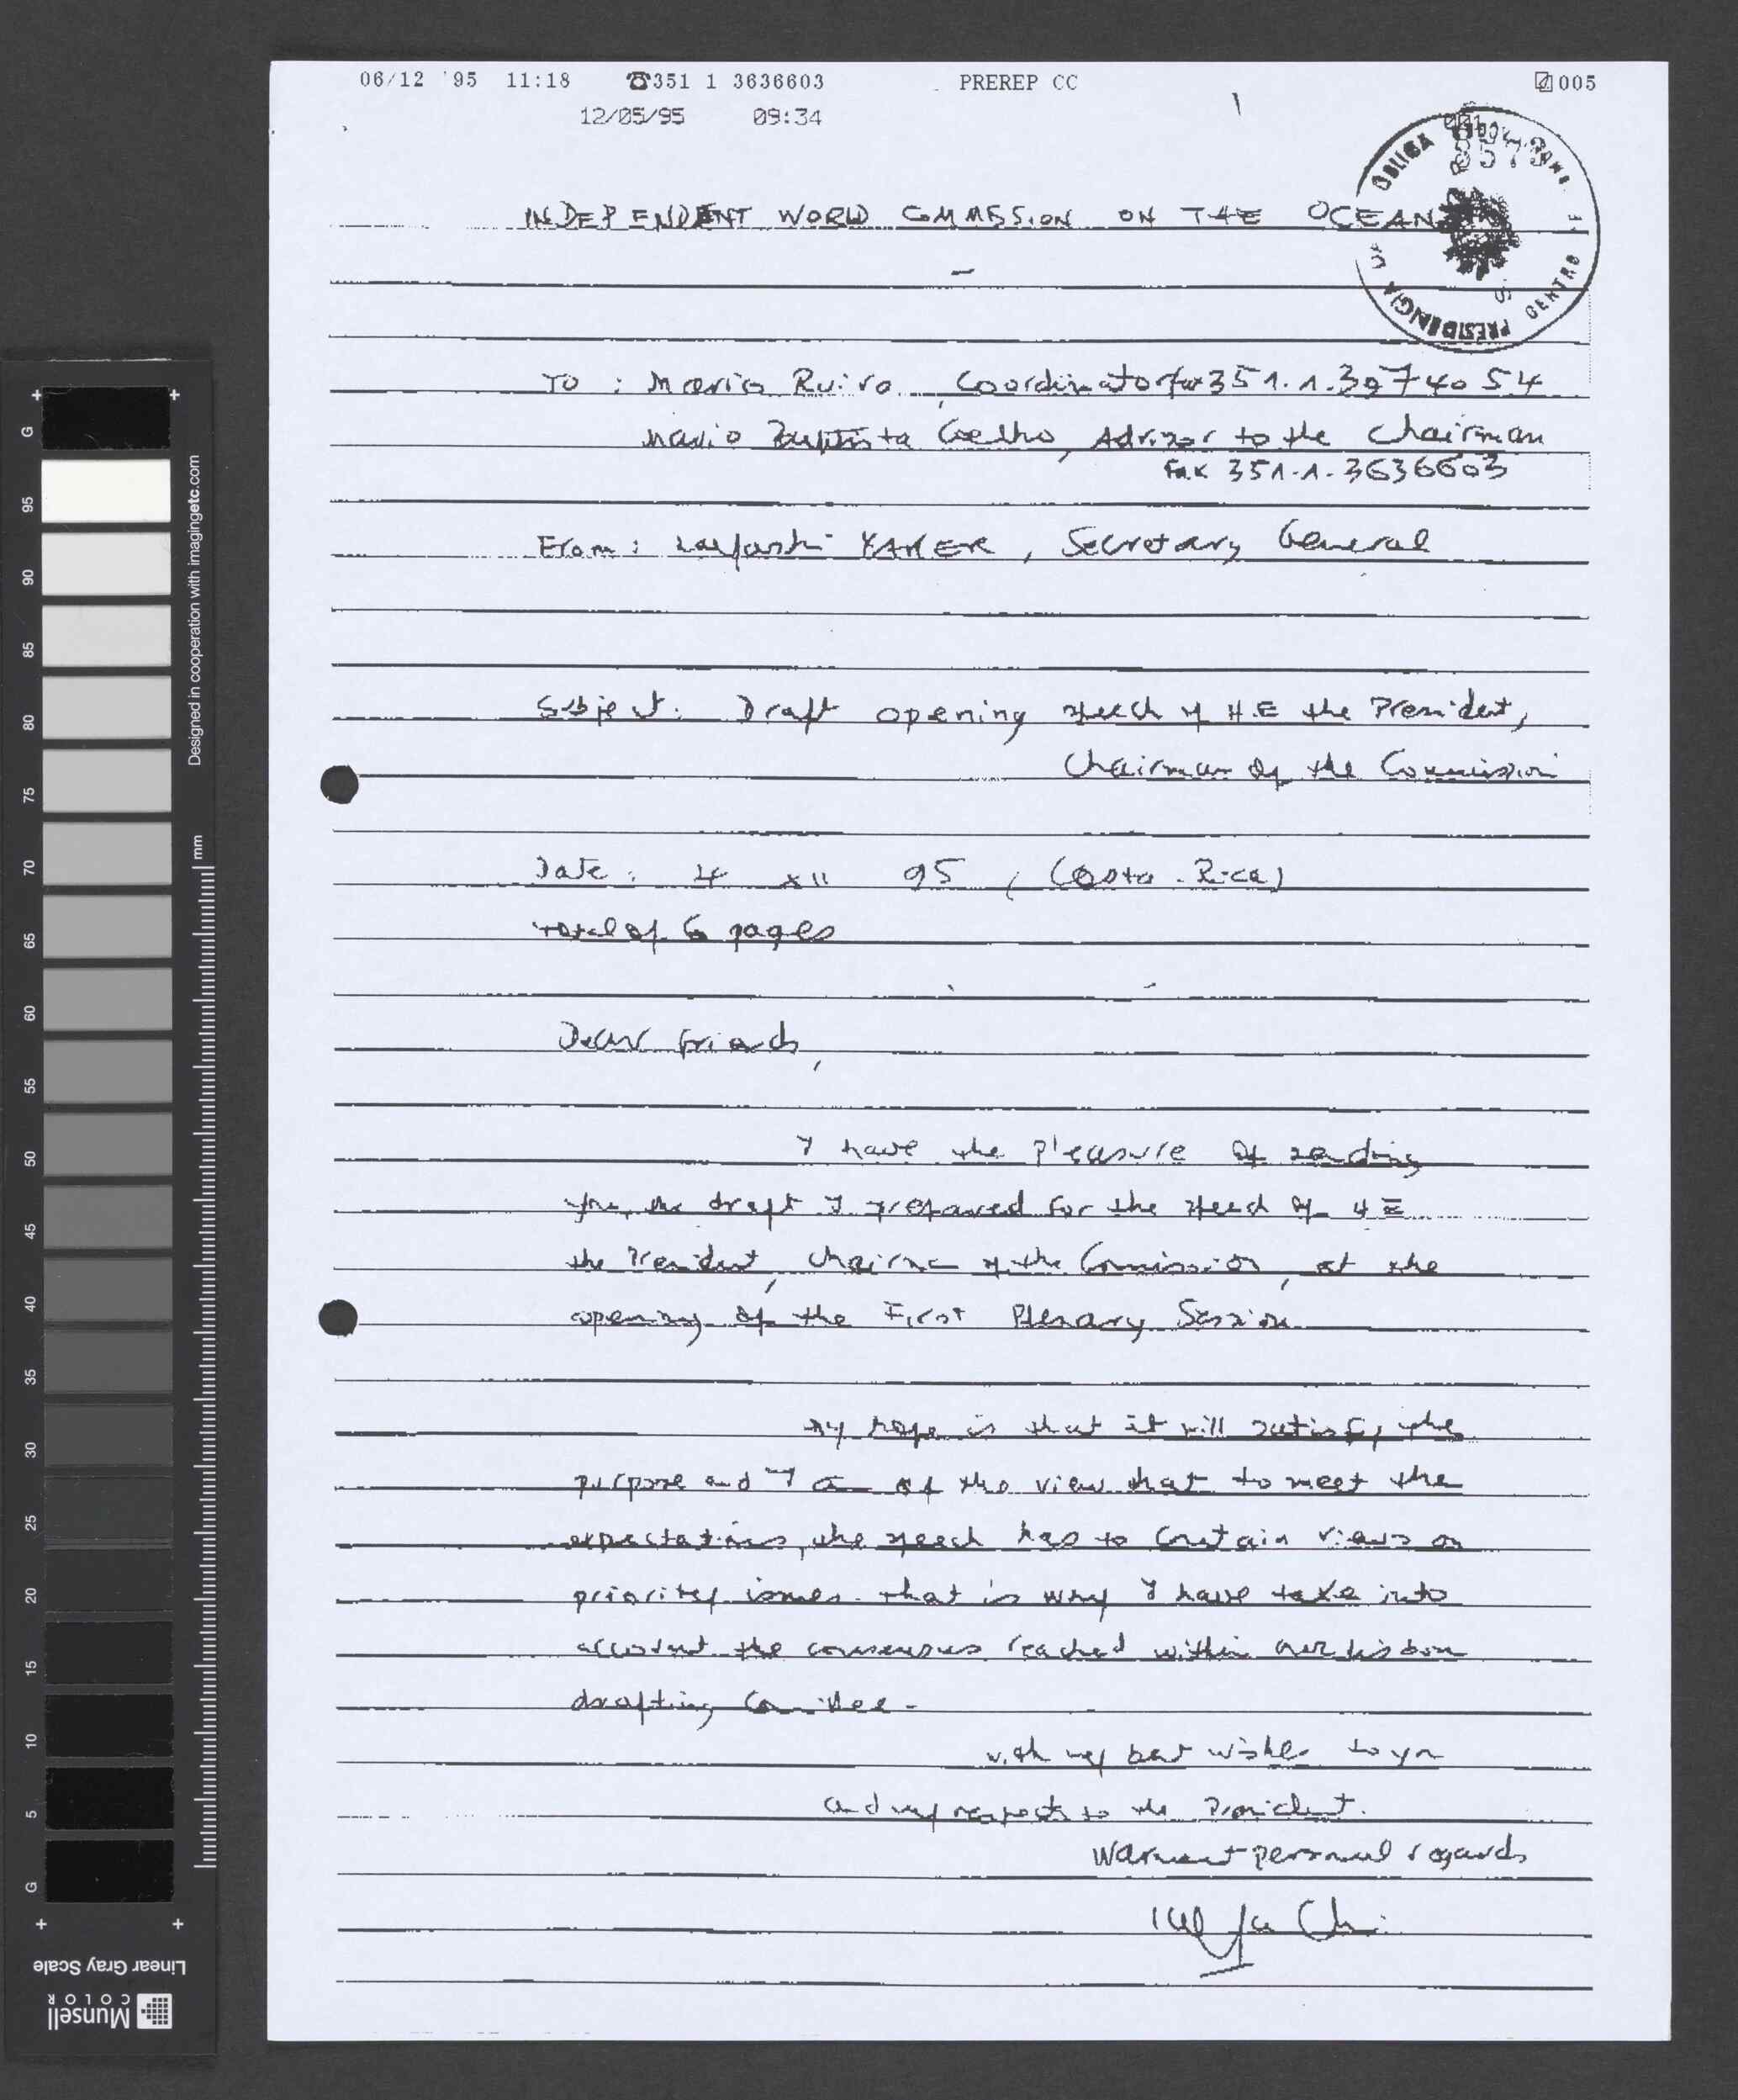 06/12 '95 11:18 ☎351 1 3636603 PREREP CC 005
12/05/95 09:34
INDEPENDENT WORLD COMMISSION ON THE OCEANS
TO : Mario Ruivo, Coordinator fax 351.1.3974054
Mario Baptista Coelho, Advisor to the Chairman
Fax 351.1.3636603
From : Layashi YAKER, Secretary General
Subject. Draft opening speech of H.E the President,
Chairman of the Commission
Date : 4 XII 95 (Costa-Rica)
total of 6 pages
Dear friends,
I have the pleasure of sending
you the draft I prepared for the speech of HE
the President, Chairman of the Commission, at the
opening of the First Plenary Session
My hope is that it will satisfy the
purpose and I am of the view that to meet the
expectations, the speech has to contain views on
priority issues. that is why I have take into
account the consensus reached within our Lisbon
drafting Committee.
with my best wishes to you
and my respects to the President.
Warmest personal regards
PRESIDÊNCIA DA
CENTRO
Designed in cooperation with imagingetc.com
mm
G 95 90 85 80 75 70 65 60 55 50 45 40 35 30 25 20 15 10 5 G
Linear Gray Scale
Munsell
COLOR